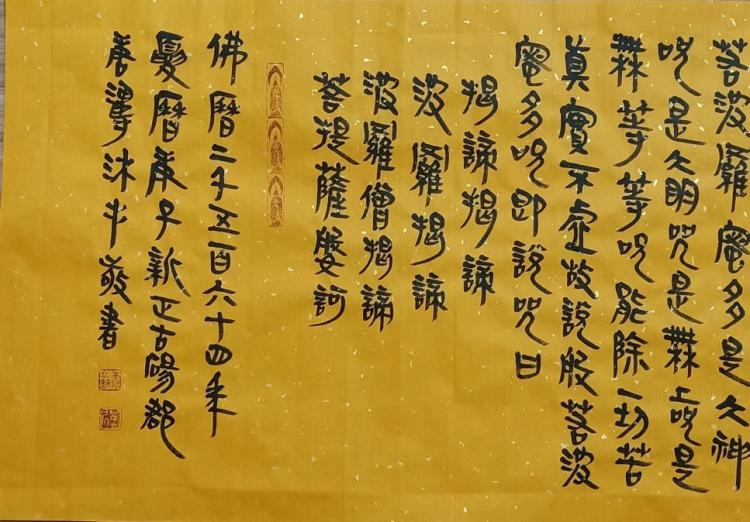 若波羅蜜多是大神
咒是大明咒是無上咒是
無等等咒能除一切苦
真實不虛故說般若波
蜜多咒即說咒曰
揭諦揭諦
波羅揭諦
波羅僧揭諦
菩提薩婆訶
佛曆二千五百六十四年
夏曆庚子新正古碭郡
唐沐手敬書